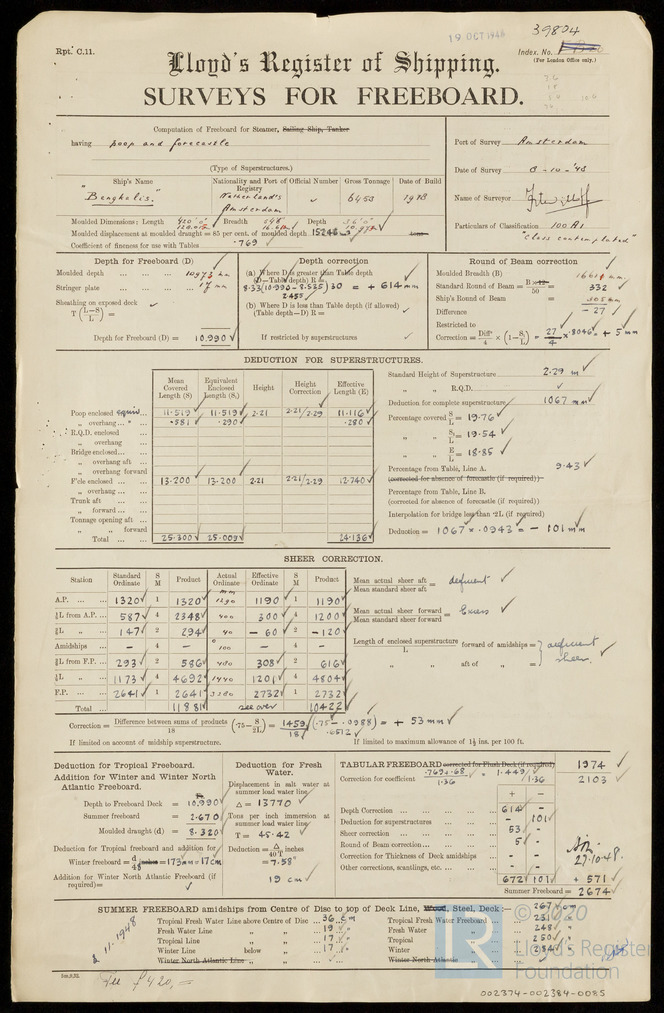 19 OCT 1948
39804
Rpt. C.11.
Index. No.
(For London Office only.)
Lloyd's Register of Shipping.
SURVEYS FOR FREEBOARD.
Computation of Freeboard for Steamer, Sailing Ship, Tanker
having poop and forecastle
(Type of Superstructures.)
Port of Survey Amsterdam
Date of Survey 8-10-'48
Name of Surveyor
Particulars of Classification 100A1
"class contemplated"
Ship's Name Nationality and Port of Registry Official Number Gross Tonnage Date of Build
"Bengkalis." Netherlands Amsterdam 6453 1918
Moulded Dimensions: Length 420'0" Breadth Depth 36'0"
Moulded displacement at moulded draught = 85 per cent. of moulded depth 15246 tons
Coefficient of fineness for use with Tables .769
Depth for Freeboard (D)
Moulded depth 10973 mm
Stringer plate 17 mm
Sheathing on exposed deck
T (L-S/L) =
Depth for Freeboard (D) = 10.990
Depth correction
(a) Where D is greater than Table depth
(D-Table depth) R =
8.33(10.990-8.535)30 = + 614 mm
2455
(b) Where D is less than Table depth (if allowed)
(Table depth-D) R =
If restricted by superstructures
Round of Beam correction
Moulded Breadth (B) 16614 mm
Standard Round of Beam = B×12/50 = 332
Ship's Round of Beam = 305 mm
Difference - 27
Restricted to
Correction = Diff/4 × (1-S₁/L) = 27/4 × .8046 = + 5 mm
DEDUCTION FOR SUPERSTRUCTURES.
Mean Covered Length (S) Equivalent Enclosed Length (S₁) Height Height Correction Effective Length (E)
Poop enclosed equiv. 11.519 11.519 2.21 2.21/2.29 11.116
„ overhang .581 .290 .280
R.Q.D. enclosed
„ overhang
Bridge enclosed
„ overhang aft
„ overhang forward
F'cle enclosed 13.200 13.200 2.21 2.21/2.29 12.740
„ overhang
Trunk aft
„ forward
Tonnage opening aft
„ „ forward
Total 25.300 25.009 24.136
Standard Height of Superstructure 2.29 m
„ „ R.Q.D.
Deduction for complete superstructure 1067 mm
Percentage covered S/L = 19.76
„ „ S₁/L = 19.54
„ „ E/L = 18.85
Percentage from Table, Line A. 9.43
(corrected for absence of forecastle (if required))
Percentage from Table, Line B.
(corrected for absence of forecastle (if required))
Interpolation for bridge less than .2L (if required)
Deduction = 1067 × .0943 = - 101 mm
SHEER CORRECTION.
Station Standard Ordinate S M Product Actual Ordinate Effective Ordinate S M Product
A.P. 1320 1 1320 1290 1190 1 1190
⅙L from A.P. 587 4 2348 400 300 4 1200
⅓L „ 147 2 294 40 - 60 2 -120
Amidships - 4 - 100 - 4 -
⅓L from F.P. 293 2 586 308 2 616
⅙L „ 1173 4 4692 1201 4 4804
F.P. 2641 1 2641 2732 1 2732
Total 11881 see over 10422
Mean actual sheer aft / Mean standard sheer aft = deficient
Mean actual sheer forward / Mean standard sheer forward = Excess
Length of enclosed superstructure / L forward of amidships = deficient
„ „ aft of „ = sheer.
Correction = Difference between sums of products / 18 (.75 - S/2L) = 1459/18 (.75 - .0988) = + 53 mm
.6512
If limited on account of midship superstructure.
If limited to maximum allowance of 1½ ins. per 100 ft.
Deduction for Tropical Freeboard.
Addition for Winter and Winter North
Atlantic Freeboard.
Depth to Freeboard Deck = 10.990
Summer freeboard = 2.670
Moulded draught (d) = 8.320
Deduction for Tropical freeboard and addition for
Winter freeboard = d/48 inches = 173 mm = 17 cm
Addition for Winter North Atlantic Freeboard (if
required) =
Deduction for Fresh
Water.
Displacement in salt water at
summer load water line
Δ = 13770
Tons per inch immersion at
summer load water line
T = 45.42
Deduction = Δ/40T inches
= 7.58"
19 cm
TABULAR FREEBOARD corrected for Flush Deck (if required) 1974
Correction for coefficient .769+.68/1.36 = 1.449/1.36 2103
+ -
Depth Correction 614 -
Deduction for superstructures - 101
Sheer correction 53 -
Round of Beam correction 5 -
Correction for Thickness of Deck amidships
Other corrections, scantlings, etc.
672 101 + 571
Summer Freeboard = 2674
27.10.48.
SUMMER FREEBOARD amidships from Centre of Disc to top of Deck Line, Wood, Steel, Deck:— 267 cm
Tropical Fresh Water Line above Centre of Disc 36 cm
Fresh Water Line „ „ 19 „
Tropical Line „ „ 17 „
Winter Line below „ 17 „
Winter North Atlantic Line „ „
Tropical Fresh Water Freeboard 231 „
Fresh Water „ 248 „
Tropical „ 250 „
Winter „ 284 „
Winter North Atlantic „
2.11.1948
Fee f 420,=
© 2020
LR
Lloyd's Register
Foundation
002374-002384-0085